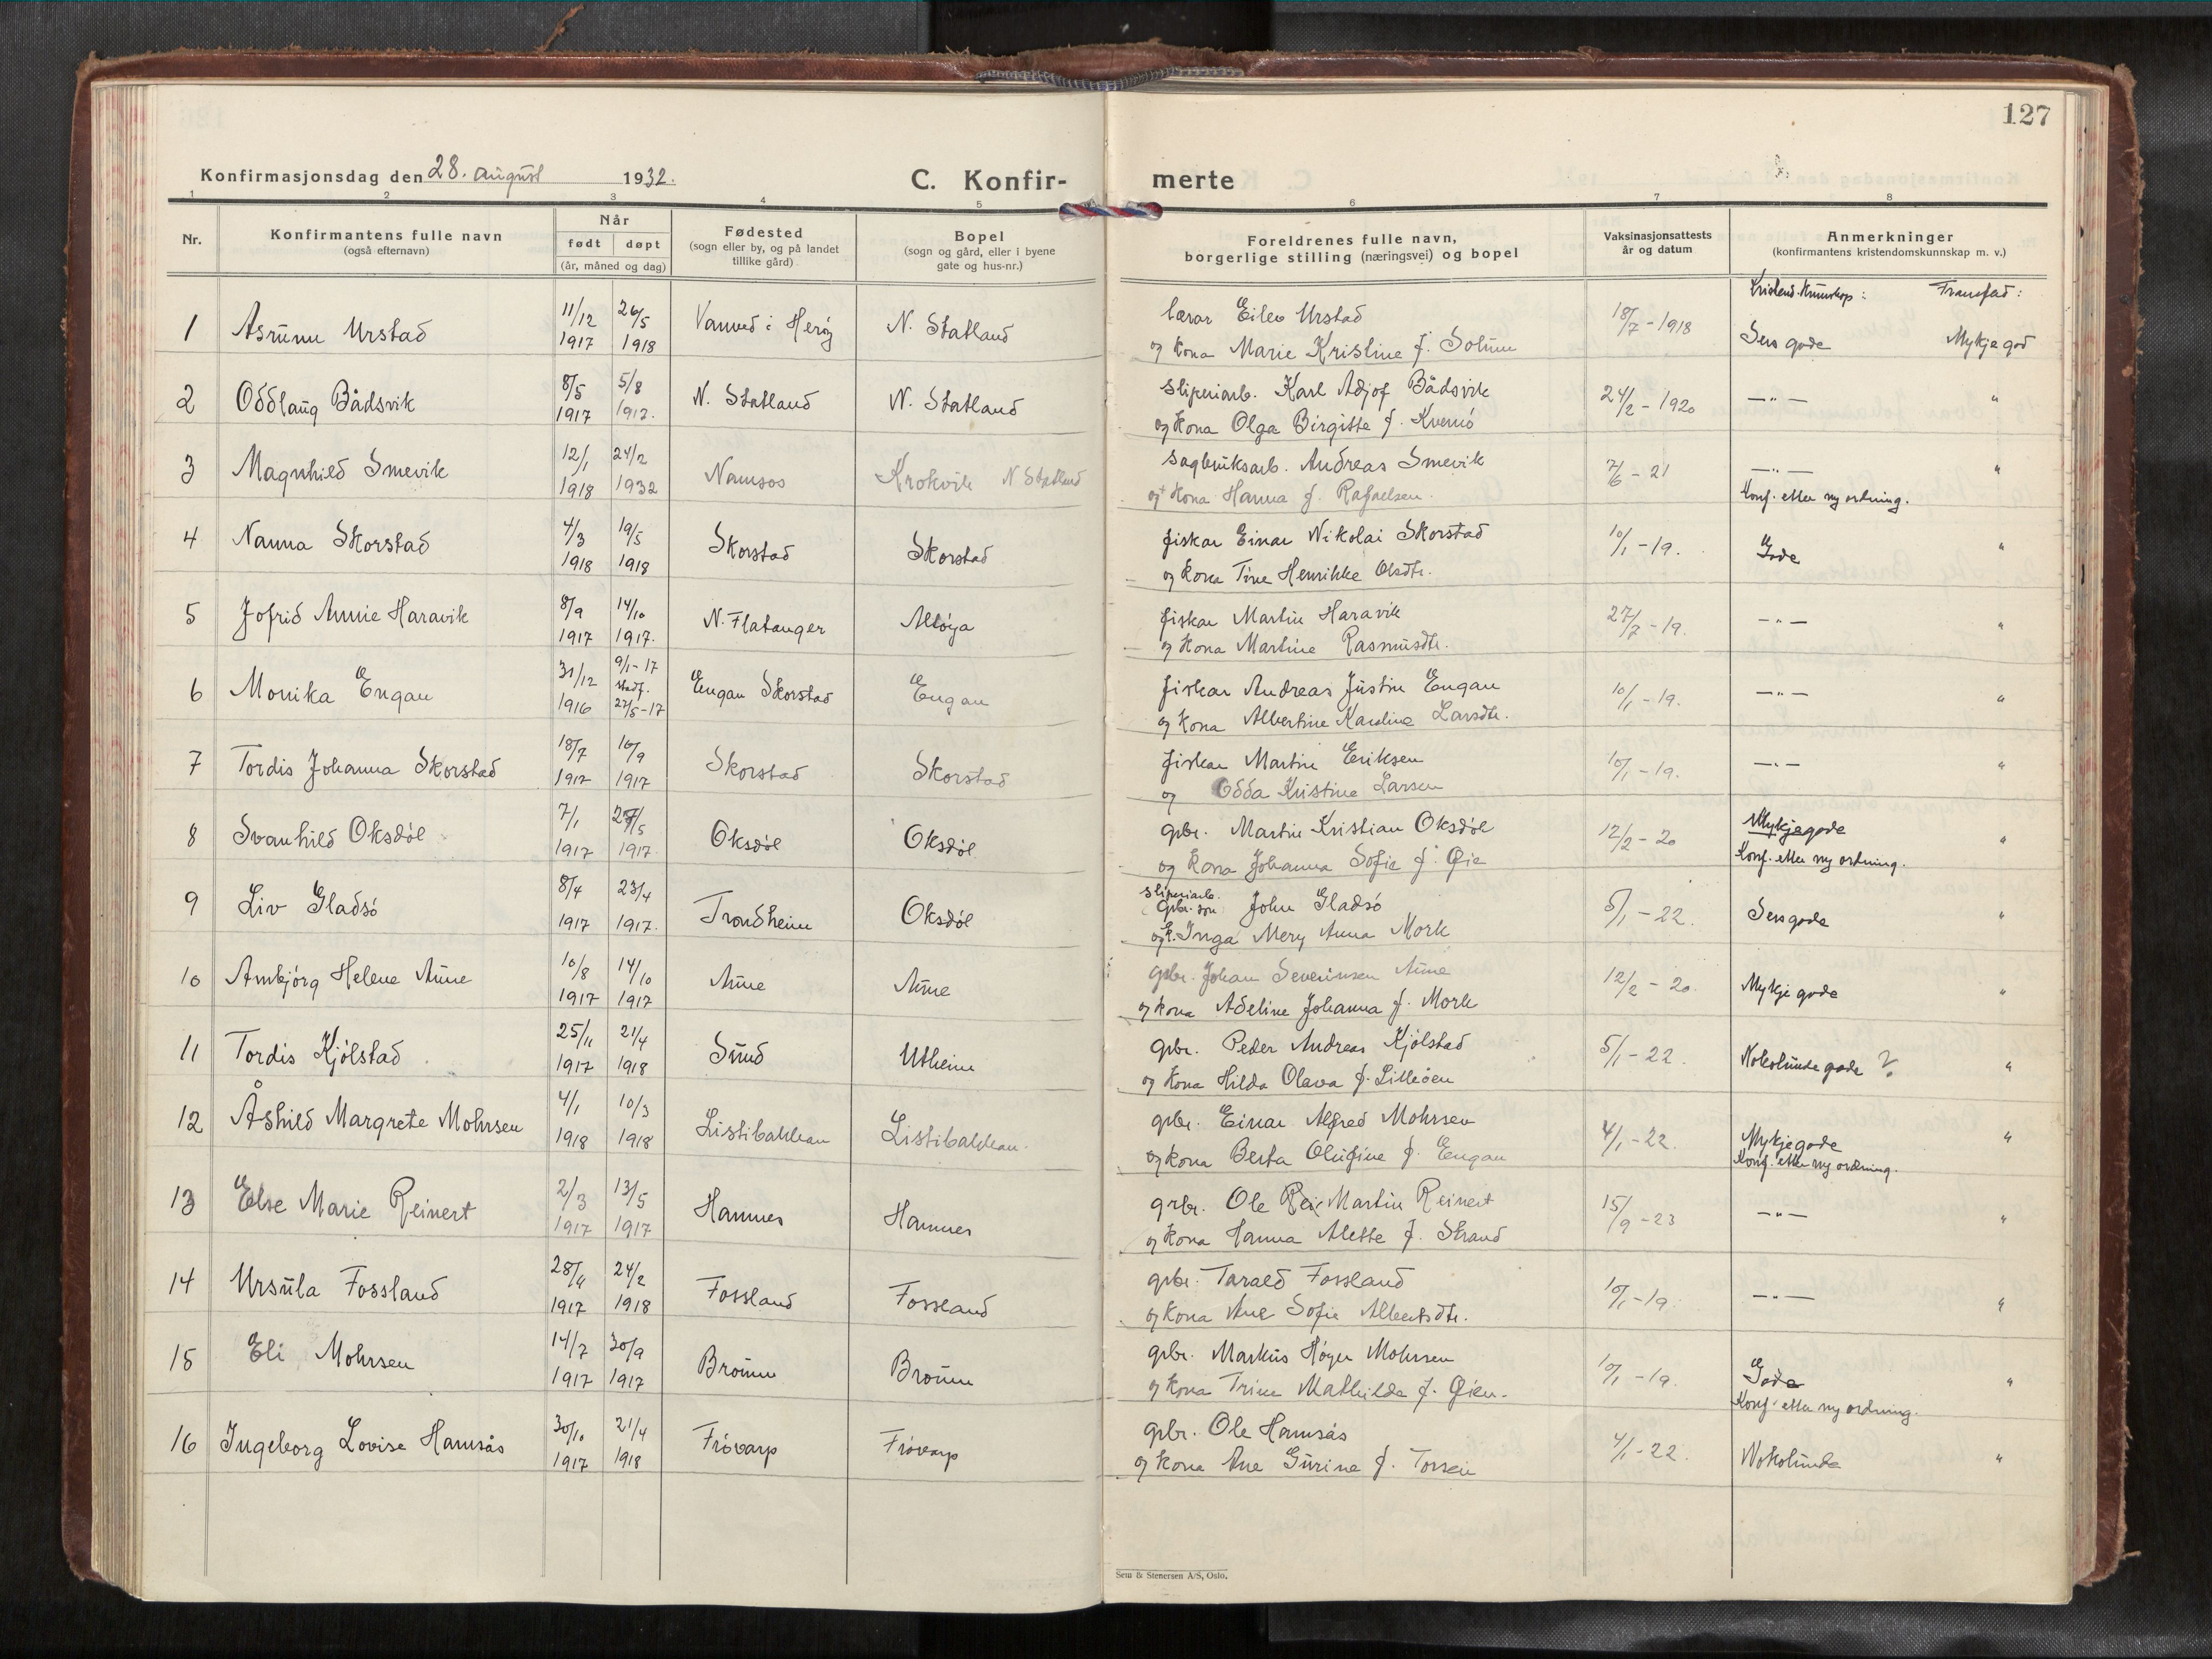 127
Konfirmasjonsdag den 28. august 1932.
C. Konfir- merte
1 2 3 4 5 6 7 8
Nr.
Konfirmantens fulle navn
(også efternavn)
Når
født døpt
(år, måned og dag)
Fødested
(sogn eller by, og på landet
tillike gård)
Bopel
(sogn og gård, eller i byene
gate og hus-nr.)
Foreldrenes fulle navn,
borgerlige stilling (næringsvei) og bopel
Vaksinasjonsattests
år og datum
Anmerkninger
(konfirmantens kristendomskunnskap m. v.)
Kristend. kunnskap: Framferd:
1 Asrunn Urstad 11/12 1917 26/5 1918 i Herøy N. Statland lærar Eilev Urstad 18/7 - 1918 Sers gode Mykje god
og kona Marie Kristine f. Solum
2 Oddlaug Bådsvik 8/5 1917 5/8 1917. N. Statland N. Statland sliperiarb. Karl Adjof Bådsvik 24/2 - 1920 —"— "
og kona Olga Birgitte f. Kvernø
3 Magnhild Smevik 12/1 1918 24/2 1932 Namsos Krokvik N Statland sagbruksarb. Andreas Smevik 7/6 - 21 —"— "
og kona Hanna f. Rafaelsen. Konf. etter ny ordning.
4 Nanna Skorstad 4/3 1918 19/5 1918 Skorstad Skorstad fiskar Einar Nikolai Skorstad 10/1 - 19. Gode "
og kona Tine Henrikke Olsdtr.
5 Jofrid Annie Haravik 8/9 1917 14/10 1917. N. Flatanger Altøya fiskar Martin Haravik 27/7 - 19. —"— "
og kona Martine Rasmusdtr.
6 Monika Engan 31/12 1916 9/1 - 17 stadf. 27/5 - 17 Engan Skorstad Engan fiskar Andreas Justin Engan 10/1 - 19. —"— "
og kona Albertine Karoline Larsdtr.
7 Tordis Johanna Skorstad 18/7 1917 16/9 1917 Skorstad Skorstad fiskar Martin Eriksen 10/1 - 19. —"— "
og Odda Kristine Larsen
8 Svanhild Oksdøl 7/1 1917 27/5 1917. Oksdøl Oksdøl gbr. Martin Kristian Oksdøl 12/2 - 20 Mykje gode "
og kona Johanna Sofie f. Øie Konf. etter ny ordning.
9 Liv Gladsø 8/4 1917 23/4 1917. Trondheim Oksdøl sliperiarb. (gbr. son) John Gladsø 5/1 - 22. Sers gode "
og k. Inga Mery Anna Mork
10 Arnbjørg Helene Aune 10/8 1917 14/10 1917 Aune Aune gbr. Johan Severinsen Aune 12/2 - 20. Mykje gode "
og kona Adeline Johanna f. Mork
11 Tordis Kjølstad 25/11 1917 21/4 1918 Sund Utheim gbr. Peder Andreas Kjølstad 5/1 - 22. Nokolunde gode ? "
og kona Hilda Olava f. Lilleøen
12 Åshild Margrete Mohrsen 4/1 1918 10/3 1918 Listibakkan Listibakkan. gbr. Einar Alfred Mohrsen 4/1 - 22. Mykje gode "
og kona Berta Olufine f. Engan Konf. etter ny ordning.
13 Else Marie Reinert 2/3 1917 13/5 1917 Hamnes Hamnes gbr. Ole Martin Reinert 15/9 - 23 —"— "
og kona Hanna Alette f. Strand
14 Ursula Fossland 28/11 1917 24/2 1918 Fossland Fossland gbr. Tarald Fossland 10/1 - 19. —"— "
og kona Ane Sofie Albertsdtr.
15 Eli Mohrsen 14/7 1917 30/9 1917 Broum Broum gbr. Markus Høyer Mohrsen 10/1 - 19. Gode "
og kona Trine Mathilde f. Øien. Konf. etter ny ordning.
16 Ingeborg Lovise Hamsås 30/10 1917 21/4 1918 Frøvarp Frøvarp gbr. Ole Hamsås 4/1 - 22. Nokolunde "
og kona Ane Gurine f.
Sem & Stenersen A/S, Oslo.